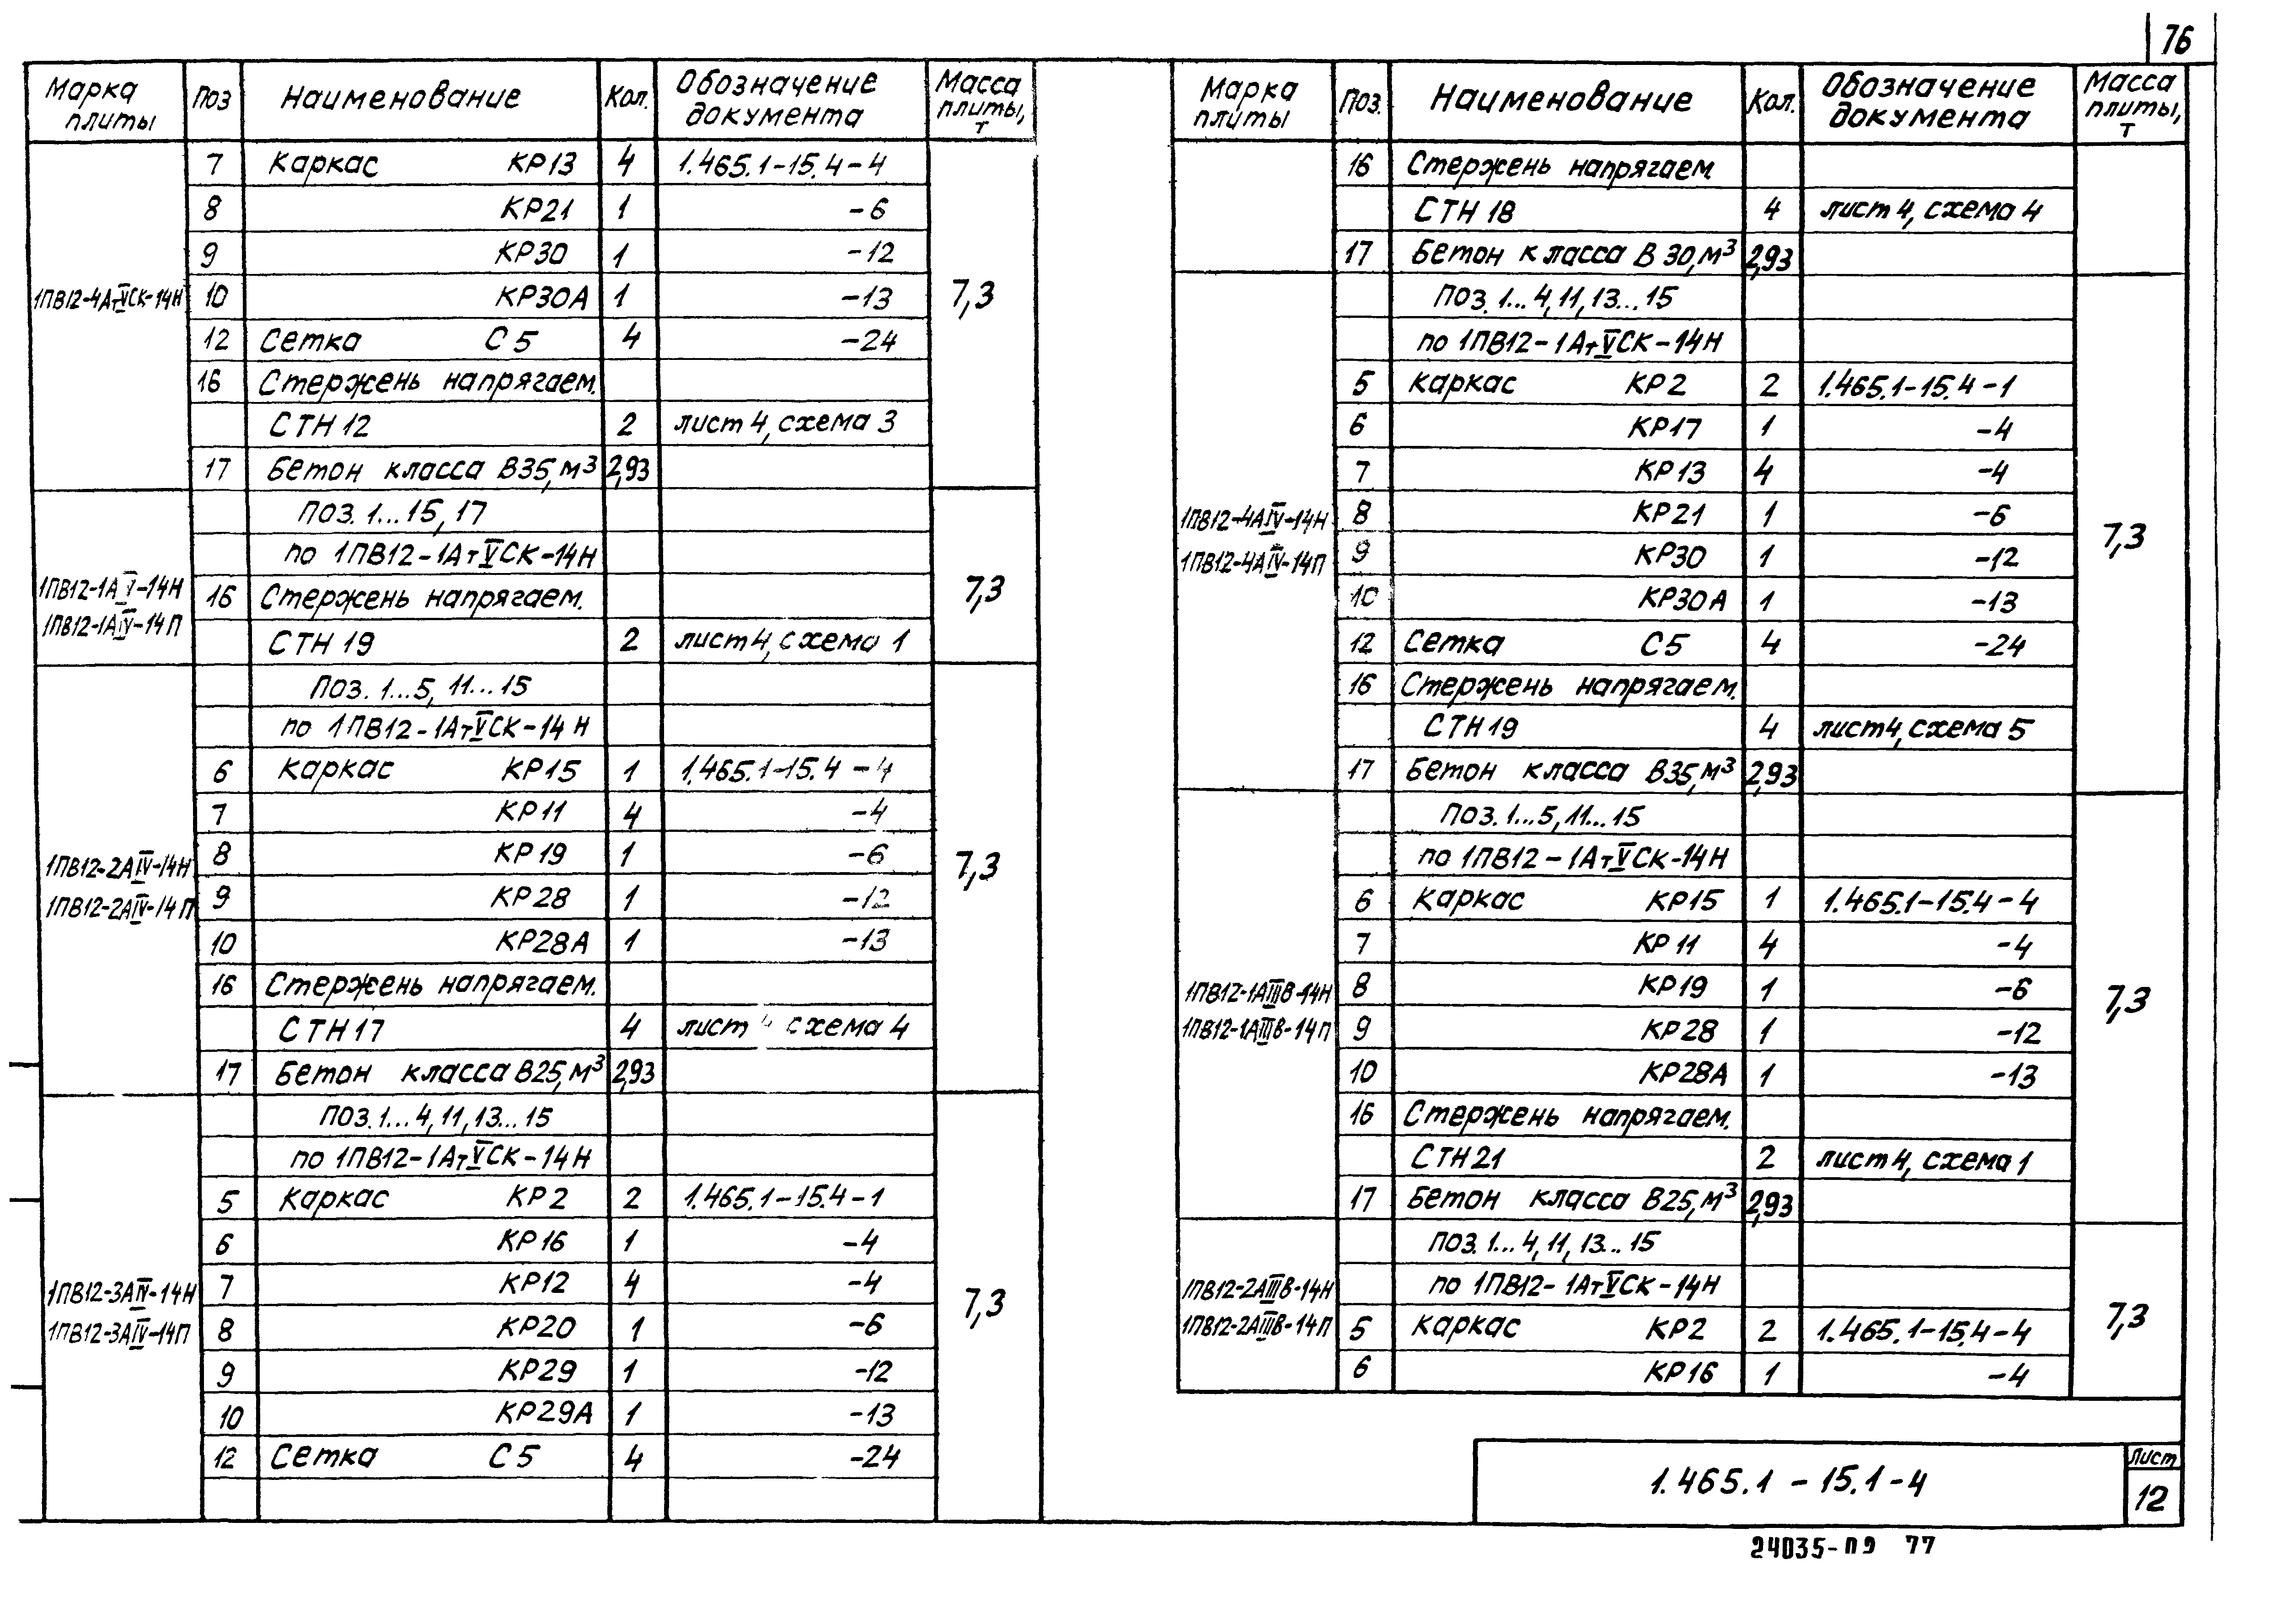 76
Марка плиты Поз Наименование Кол. Обозначение документа Масса плиты, т
1ПВ12-4АтVСК-14Н 7,3
7 Каркас КР13 4 1.465.1-15.4-4
8 КР21 1 -6
9 КР30 1 -12
10 КР30А 1 -13
12 Сетка С5 4 -24
16 Стержень напрягаем.
СТН12 2 лист 4, схема 3
17 Бетон класса В35, м³ 2,93
1ПВ12-1АV-14Н
1ПВ12-1АIV-14П 7,3
Поз. 1...15, 17
по 1ПВ12-1АтVСК-14Н
16 Стержень напрягаем.
СТН19 2 лист 4, схема 1
1ПВ12-2АIV-14Н
1ПВ12-2АIV-14П 7,3
Поз. 1...5, 11...15
по 1ПВ12-1АтVСК-14Н
6 Каркас КР15 1 1.465.1-15.4-4
7 КР11 4 -4
8 КР19 1 -6
9 КР28 1 -12
10 КР28А 1 -13
16 Стержень напрягаем.
СТН17 4 лист 4 схема 4
17 Бетон класса В25, м³ 2,93
1ПВ12-3АIV-14Н
1ПВ12-3АIV-14П 7,3
Поз. 1...4, 11, 13...15
по 1ПВ12-1АтVСК-14Н
5 Каркас КР2 2 1.465.1-15.4-1
6 КР16 1 -4
7 КР12 4 -4
8 КР20 1 -6
9 КР29 1 -12
10 КР29А 1 -13
12 Сетка С5 4 -24
Марка плиты Поз. Наименование Кол. Обозначение документа Масса плиты, т
16 Стержень напрягаем.
СТН18 4 лист 4, схема 4
17 Бетон класса В30, м³ 2,93
1ПВ12-4АIV-14Н
1ПВ12-4АIV-14П 7,3
Поз. 1...4, 11, 13...15
по 1ПВ12-1АтVСК-14Н
5 Каркас КР2 2 1.465.1-15.4-1
6 КР17 1 -4
7 КР13 4 -4
8 КР21 1 -6
9 КР30 1 -12
10 КР30А 1 -13
12 Сетка С5 4 -24
16 Стержень напрягаем.
СТН19 4 лист 4, схема 5
17 Бетон класса В35, м³ 2,93
1ПВ12-1АIIIВ-14Н
1ПВ12-1АIIIВ-14П 7,3
Поз. 1...5, 11...15
по 1ПВ12-1АтVСК-14Н
6 Каркас КР15 1 1.465.1-15.4-4
7 КР11 4 -4
8 КР19 1 -6
9 КР28 1 -12
10 КР28А 1 -13
16 Стержень напрягаем.
СТН21 2 лист 4, схема 1
17 Бетон класса В25, м³ 2,93
1ПВ12-2АIIIВ-14Н
1ПВ12-2АIIIВ-14П 7,3
Поз. 1...4, 11, 13...15
по 1ПВ12-1АтVСК-14Н
5 Каркас КР2 2 1.465.1-15.4-4
6 КР16 1 -4
1.465.1-15.1-4
лист
12
24035-09 77